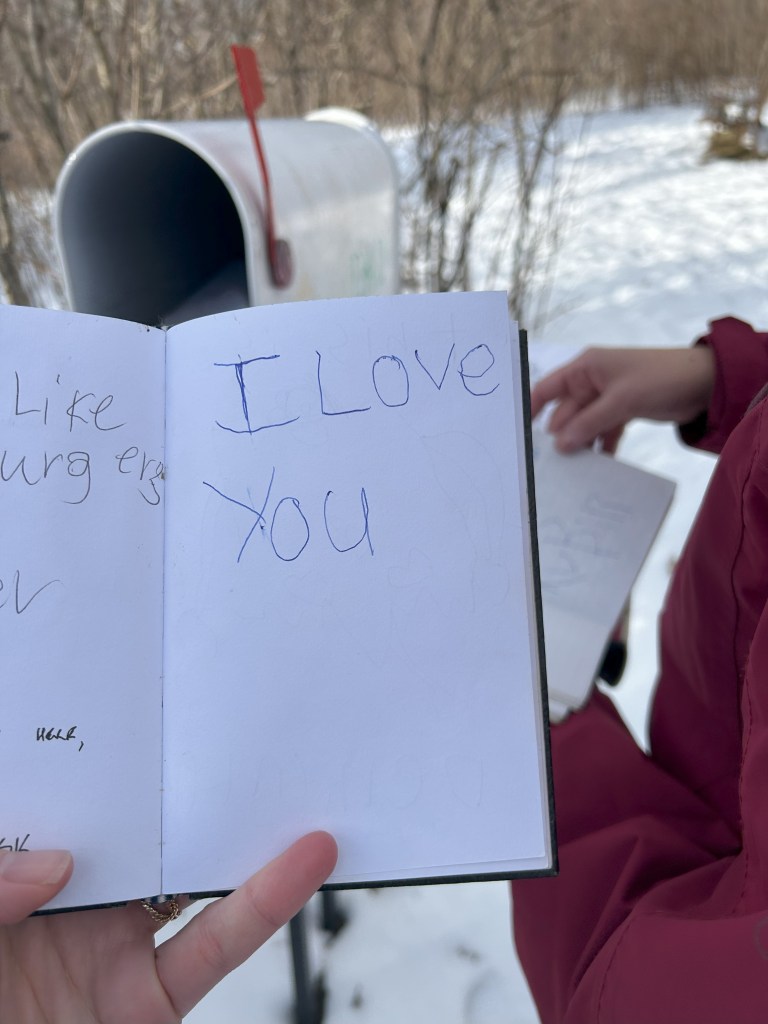 Like
urgers
er
HERE,
I Love
You